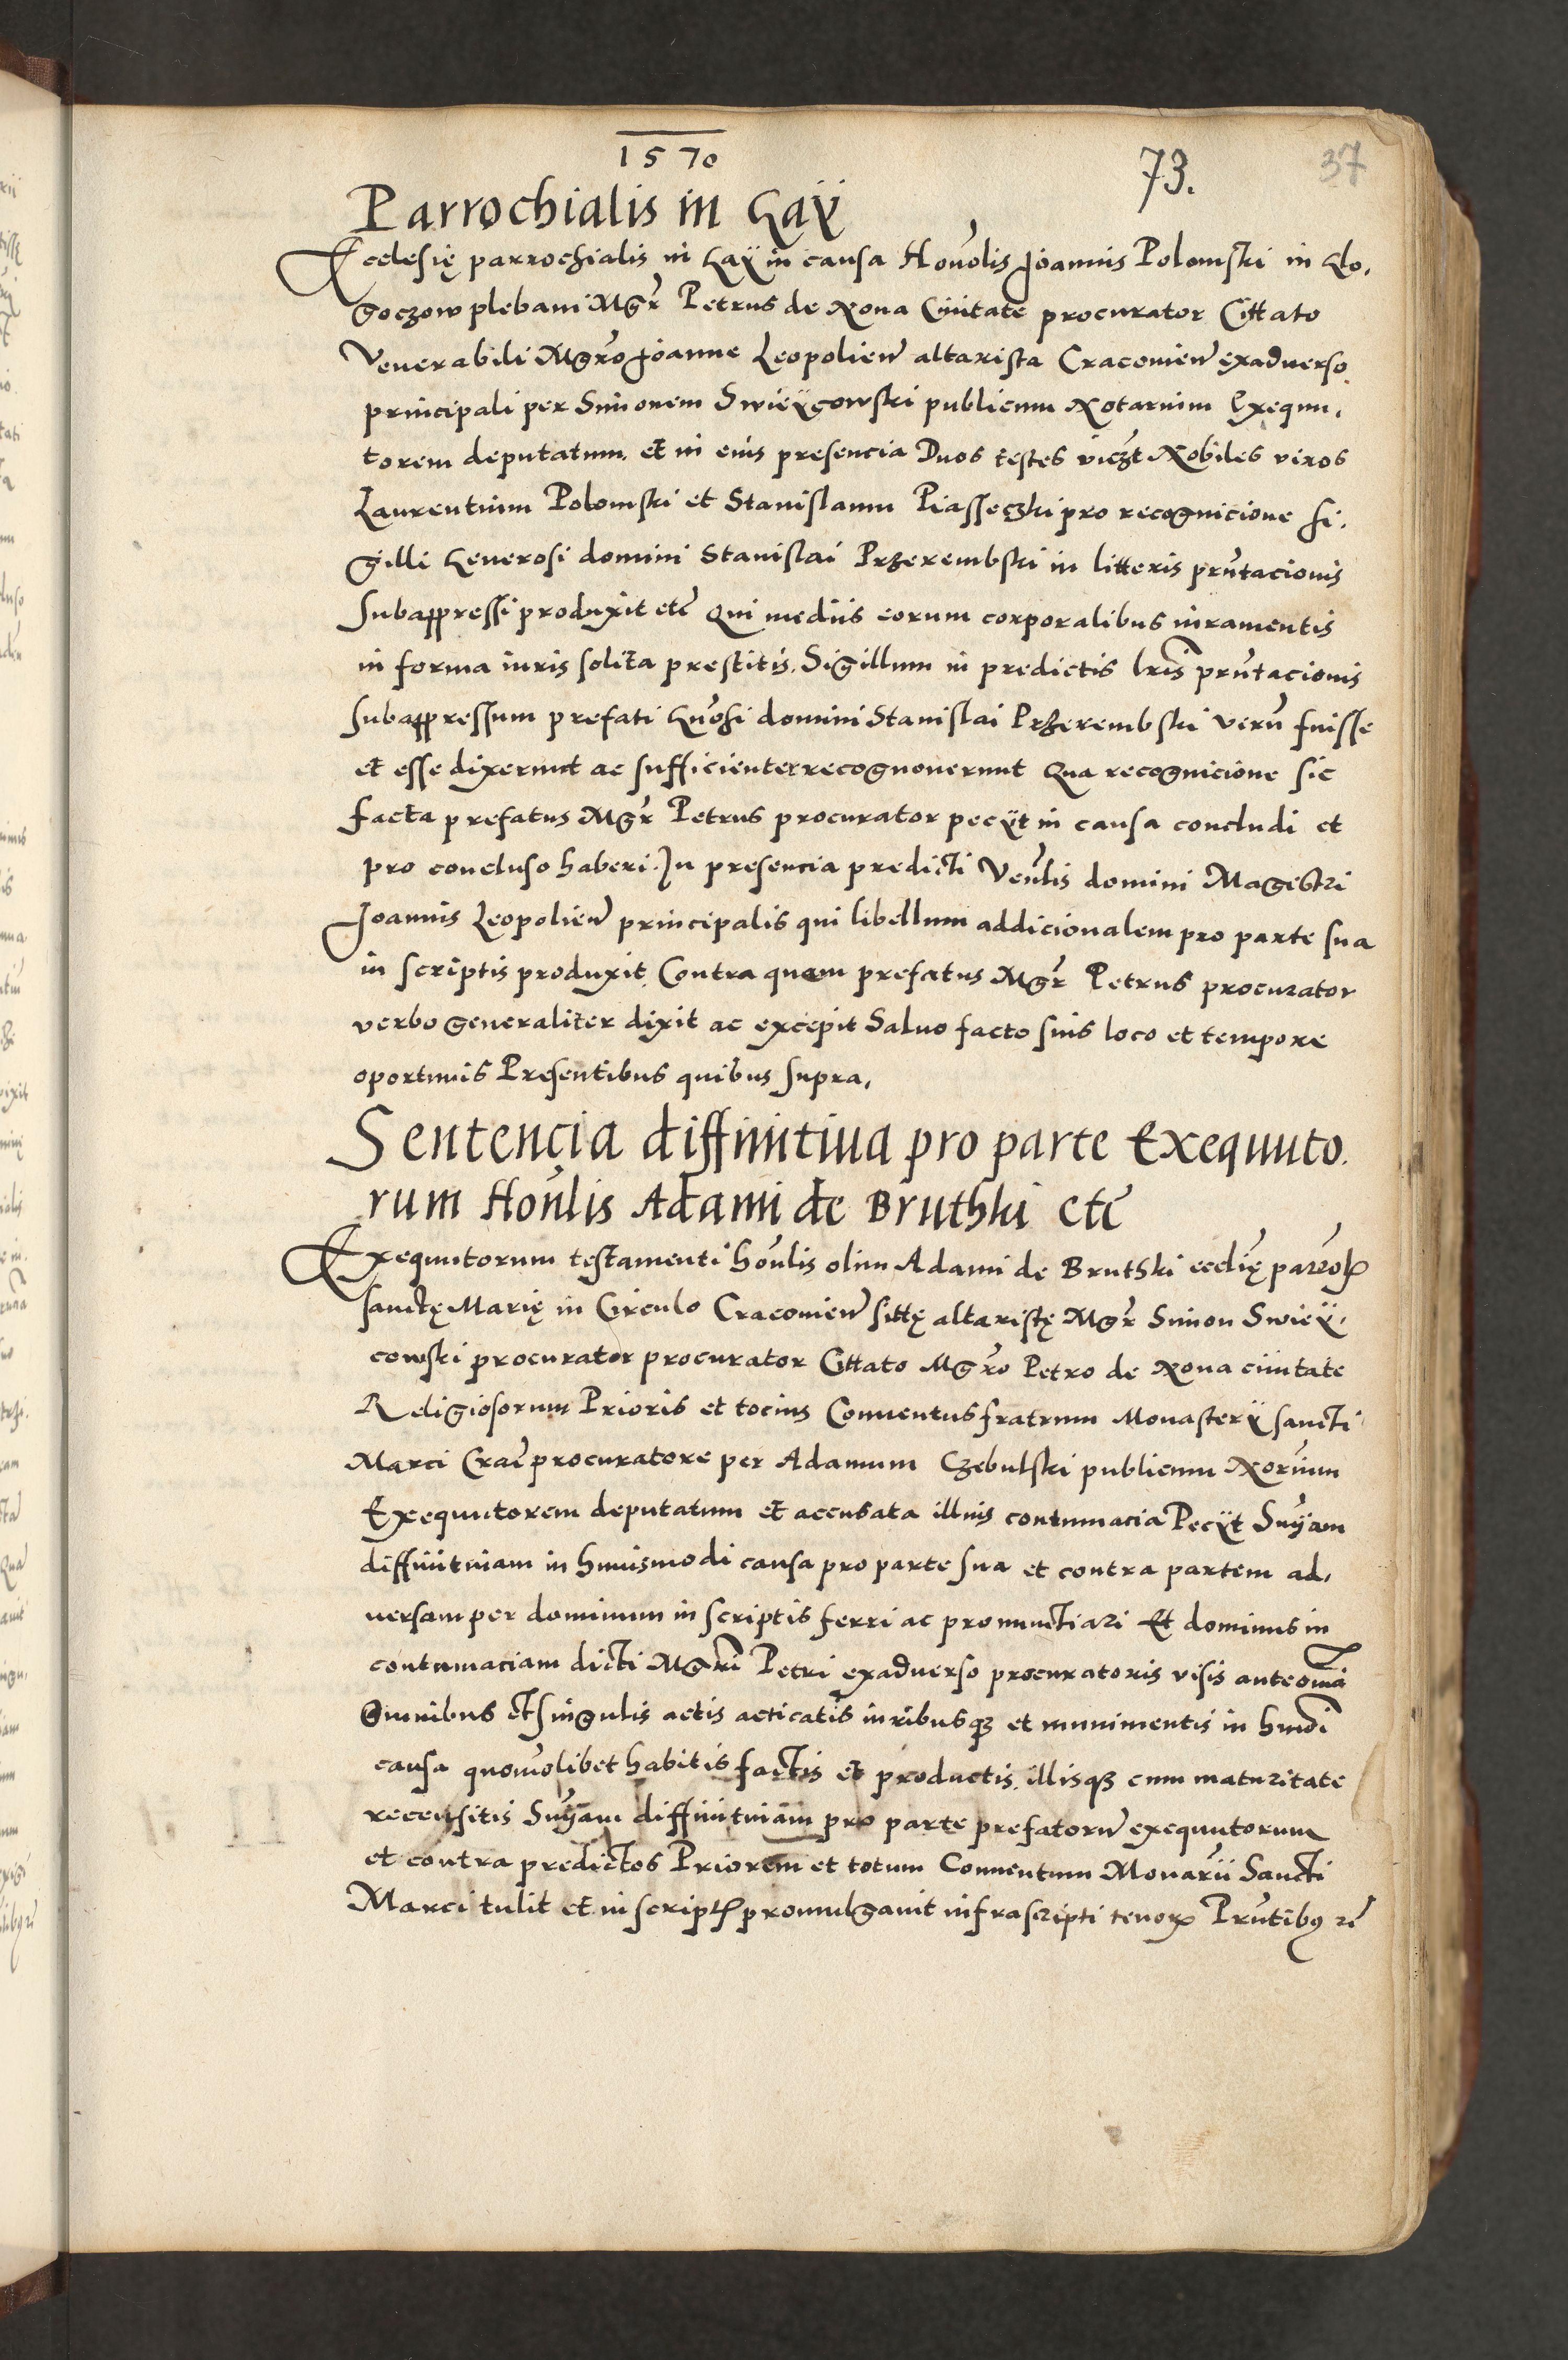 1570
73.
37
Parrochialis in Gaÿ
Ecclesię parrochialis in Gaÿ in causa Honolis Joannis Polomski in Glo,
goczow plebani Mgr Petrus de Noua Ciuitate procurator Cittato
Venerabili Mgro Joanne Leopolien altarista Cracouien exaduerso
principali per Simonem Swieÿcowski publicum Notarium Exequu,
torem deputatum et in eius presencia Duos testes viczt Nobiles viros
Laurentium Polomski et Stanislaum Piasseczki pro recognicione si,
gilli Generosi domini Stanislai Przerembski in litteris prntacionis
subappressi produxit etc Qui mediis eorum corporalibus iuramentis
in forma iuris solita prestitis. Sigillum in predictis lris prntacionis
subappressum prefati Gnosi domini Stanislai Przerembski verum fuisse
et esse dixerunt ac sufficienter recognouerunt Qua recognicione sic
facta prefatus Mgr Petrus procurator pecÿt in causa concludi et
pro concluso haberi. In presencia predicti Venlis domini Magistri
Joannis Leopolien principalis qui libellum addicionalem pro parte sua
in scriptis produxit Contra quem prefatus Mgr Petrus procurator
verbo generaliter dixit ac excepit Saluo facto suis loco et tempore
oportunis Presentibus quibus supra,
Sentencia diffinitiua pro parte Exequuto,
rum Honlis Adami de Bruthki etc
Exequutorum testamenti honlis olim Adami de Bruthki ecclię parrolis
sanctę Marię in Circulo Cracouien sittę altaristę Mgr Simon Swieÿ,
cowski procurator procurator Cittato Mgro Petro de Noua ciuitate
Religiosorum Prioris et tocius Conuentus fratrum Monasterÿ sancti
Marci Crac procuratore per Adamum Czebulski publicum Norium
Exequutorem deputatum et accusata illius contumacia Pecÿt Snÿam
diffinitiuam in huiusmodi causa pro parte sua et contra partem ad,
uersam per dominum in scriptis ferri ac pronunctiari Et dominus in
contumaciam dicti Mgri Petri exaduerso procuratoris visis ante omia
Omnibus et singulis actis acticatis iuribusqz et munimentis in hmdi
causa quomolibet habitis factis et productis, illisqz cum maturitate
recensitis Snÿam diffinitiuam pro parte prefatorum exequutorum
et contra predictos Priorem et totum Conuentum Monarii Sancti
Marci tulit et in scriptis promulgauit infrascripti tenoris Prntibus etc